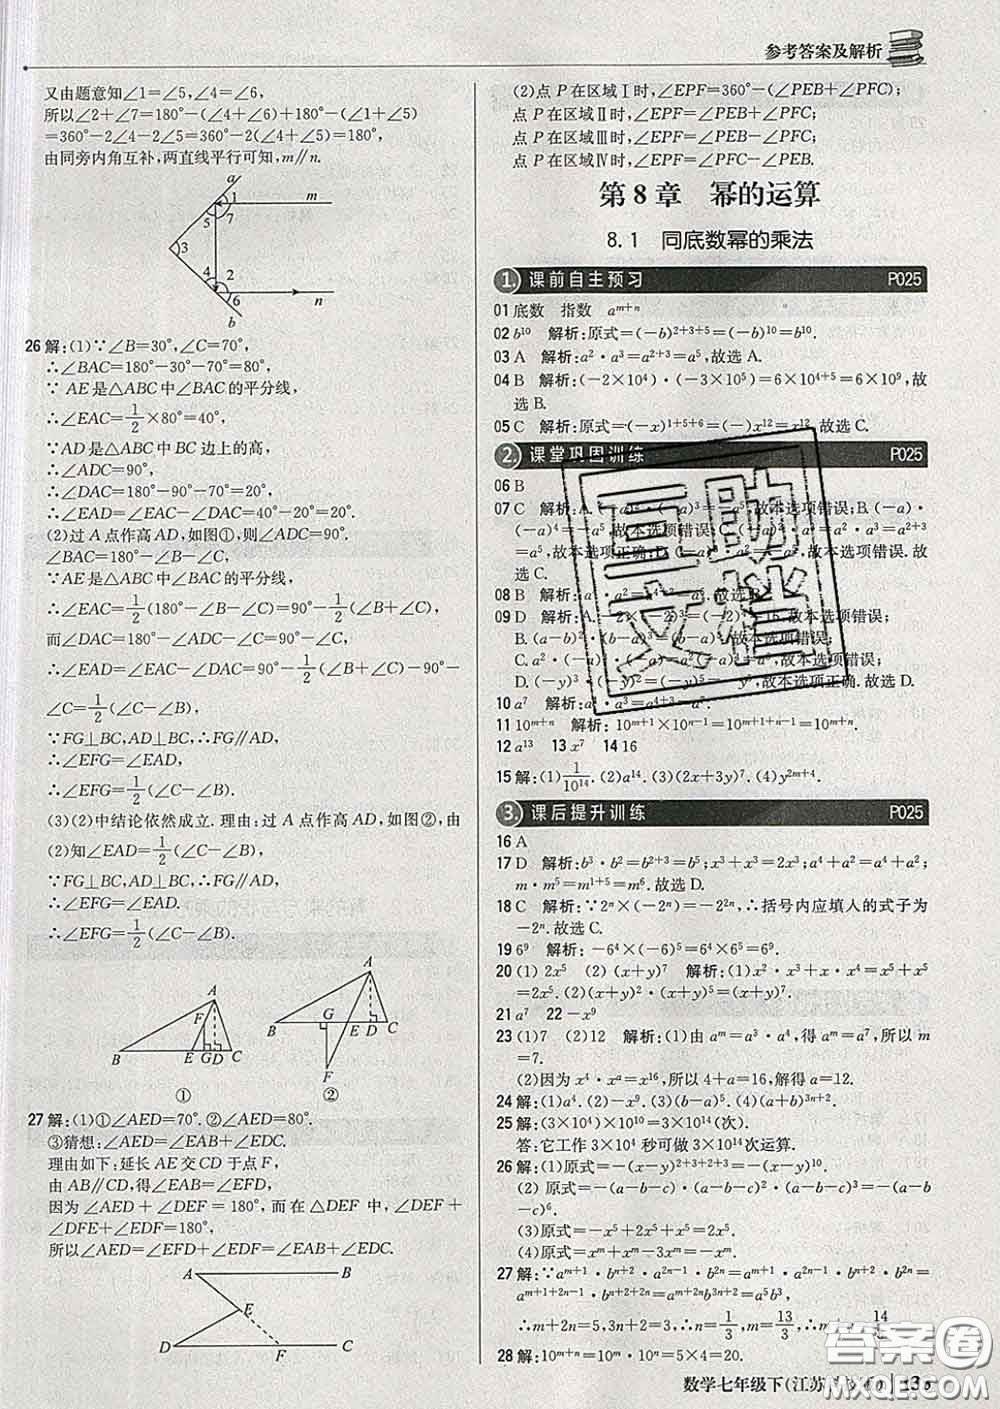 参考答案及解析
又由题意知∠1=∠5,∠4=∠6,
所以∠2+∠7=180°-(∠4+∠6)+180°-(∠1+∠5)
=360°-2∠4-2∠5=360°-2(∠4+∠5)=180°,
由同旁内角互补,两直线平行可知,m∥n.
a
1
m
5
7
3
4
2
6
n
b
26 解:(1)∵∠B=30°,∠C=70°,
∴∠BAC=180°-30°-70°=80°,
∵ AE是△ABC中∠BAC的平分线,
∴∠EAC=1/2×80°=40°,
∵AD是△ABC中BC边上的高,
∴∠ADC=90°,
∴∠DAC=180°-90°-70°=20°,
∴∠EAD=∠EAC-∠DAC=40°-20°=20°.
(2)过A点作高AD,如图①,则∠ADC=90°.
∠BAC=180°-∠B-∠C,
∵AE是△ABC中∠BAC的平分线,
∴∠EAC=1/2(180°-∠B-∠C)=90°-1/2(∠B+∠C),
而∠DAC=180°-∠ADC-∠C=90°-∠C,
∴∠EAD=∠EAC-∠DAC=90°-1/2(∠B+∠C)-90°-
∠C=1/2(∠B+∠C),
∵FG⊥BC,AD⊥BC,∴FG∥AD,
∴∠EFG=∠EAD,
∴∠EFG=1/2(∠C-∠B).
(3)(2)中结论依然成立.理由:过A点作高AD,如图②,由
(2)知∠EAD=1/2(∠C-∠B),
∵FG⊥BC,AD⊥BC,∴FG∥AD,
∴∠EFG=∠EAD.
∴∠EFG=1/2(∠C-∠B).
A
F
B
E
G
D
C
①
A
G
B
E
D
C
F
②
27 解:(1)①∠AED=70°.②∠AED=80°.
③猜想:∠AED=∠EAB+∠EDC.
理由如下:延长AE交CD于点F,
由AB∥CD,得∠EAB=∠EFD,
因为∠AED+∠DEF=180°,而在△DEF中,∠DEF+
∠DFE+∠EDF=180°,
所以∠AED=∠EFD+∠EDF=∠EAB+∠EDC.
A
B
E
D
F
C
(2)点P在区域Ⅰ时,∠EPF=360°-(∠PEB+∠PFC);
点P在区域Ⅱ时,∠EPF=∠PEB+∠PFC;
点P在区域Ⅲ时,∠EPF=∠PEB-∠PFC;
点P在区域Ⅳ时,∠EPF=∠PFC-∠PEB.
第8章 幂的运算
8.1 同底数幂的乘法
1. 课前自主预习 P025
01 底数 指数 a^{m+n}
02 b^{10} 解析:原式=(-b)^{2+3+5}=(-b)^{10}=b^{10}.
03 A 解析:a²·a³=a^{2+3}=a⁵,故选A.
04 B 解析:(-2×10⁴)·(-3×10⁵)=6×10^{4+5}=6×10⁹,故
选B.
05 C 解析:原式=(-x)^{1+5+6}=(-x)^{12}=x^{12}.故选C.
2. 课堂巩固训练 P025
06 B
07 C 解析:A.(-a)
故本选项错误;B.(-a)·
故本选项错误;
=a⁵,故本选项正确;
故本选项错误.故
选C.
08 B 解析:
故选B.
09 D 解析:
故本选项错误;
B.(a-b)²·(b-a)³
故本选项错误;
C.a²·
故本选项错误;
D.(-y)³·(-y)⁵
故本选项正确.故选D.
10 a⁷ 解析:a⁴·a³=a^{4+3}=a⁷.
11 10^{m+n} 解析:10^{m+1}×10^{n-1}=10^{m+1+n-1}=10^{m+n}.
12 a^{13} 13 x⁷ 14 16
15 解:(1)1/10^{14}.(2)a^{14}.(3)(2x+3y)⁷.(4)y^{2m+4}.
3. 课后提升训练 P025
16 A
17 D 解析:b³·b²=b^{2+3}=b⁵;x³+x³=2x³;a⁴+a²=a⁴+a²;
m·m⁵=m^{1+5}=m⁶.故选D.
18 C 解析:∵2ⁿ×(-2ⁿ)=-2^{2n},∴括号内应填入的式子为
-2ⁿ.故选C.
19 6⁹ 解析:-6⁴×(-6)⁵=6⁴×6⁵=6⁹.
20 (1) 2x⁵ (2) (x+y)⁷ 解析:(1)x²·x³+x·x⁴=x⁵+x⁵
=2x⁵.(2)(x+y)²·(x+y)⁵=(x+y)^{2+5}=(x+y)⁷.
21 a⁷ 22 -x⁹
23 (1)7 (2)12 解析:(1)由a^m=a³·a⁴,得a^m=a⁷,所以m
=7.
(2)因为x⁴·x^a=x^{16},所以4+a=16,解得a=12.
24 解:(1)a⁴.(2)-x⁹.(3)(b-a)⁵.(4)(a+b)^{3n+2}.
25 解:(3×10⁴)×10^{10}=3×10^{14}(次).
答:它工作3×10⁴秒可做3×10^{14}次运算.
26 解:(1)原式=-(x-y)^{2+3+2+3}=-(x-y)^{10}.
(2) 原式=-(a-b-c)·(a-b-c)²·(a-b-c)³=-(a-b
-c)⁶.
(3)原式=-x⁵+2x⁵+x⁵=2x⁵.
(4)原式=x^m+x^m-3x^m=-x^m.
27 解:∵a^{m+1}·b^{n+2}·a^{2n-1}·b^{2n}=a^{m+1}·a^{2n-1}·b^{n+2}·b^{2n}=
a^{m+1+2n-1}·b^{n+2+2n}=a^{m+2n}b^{3n+2}=a⁵b³,
∴m+2n=5,3n+2=3,∴n=1/3,m=13/3,∴
28 解:10^{m+n}=10^m×10^n=5×4=20.
数学七年级下(江苏
互助文档
答案圈